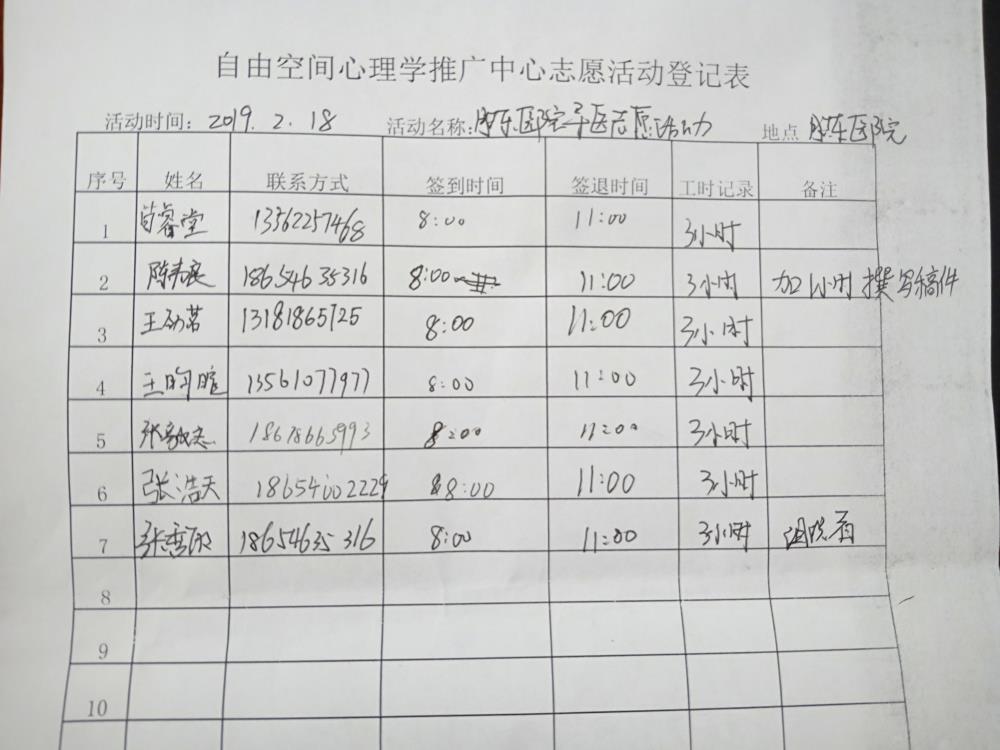 自由空间心理学推广中心志愿活动登记表
活动时间：2019.2.18 活动名称：胜东医院导医志愿活动 地点 胜东医院
序号 姓名 联系方式 签到时间 签退时间 工时记录 备注
1 苗睿堂 13562257468 8:00 11:00 3小时
2 18654635316 8:00 11:00 3小时 加1小时撰写稿件
3 王劭茗 13181865725 8:00 11:00 3小时
4 王昀暄 13561077977 8:00 11:00 3小时
5 18678665993 8:00 11:00 3小时
6 张浩天 18654602229 8:00 11:00 3小时
7 18654635316 8:00 11:00 3小时
8
9
10